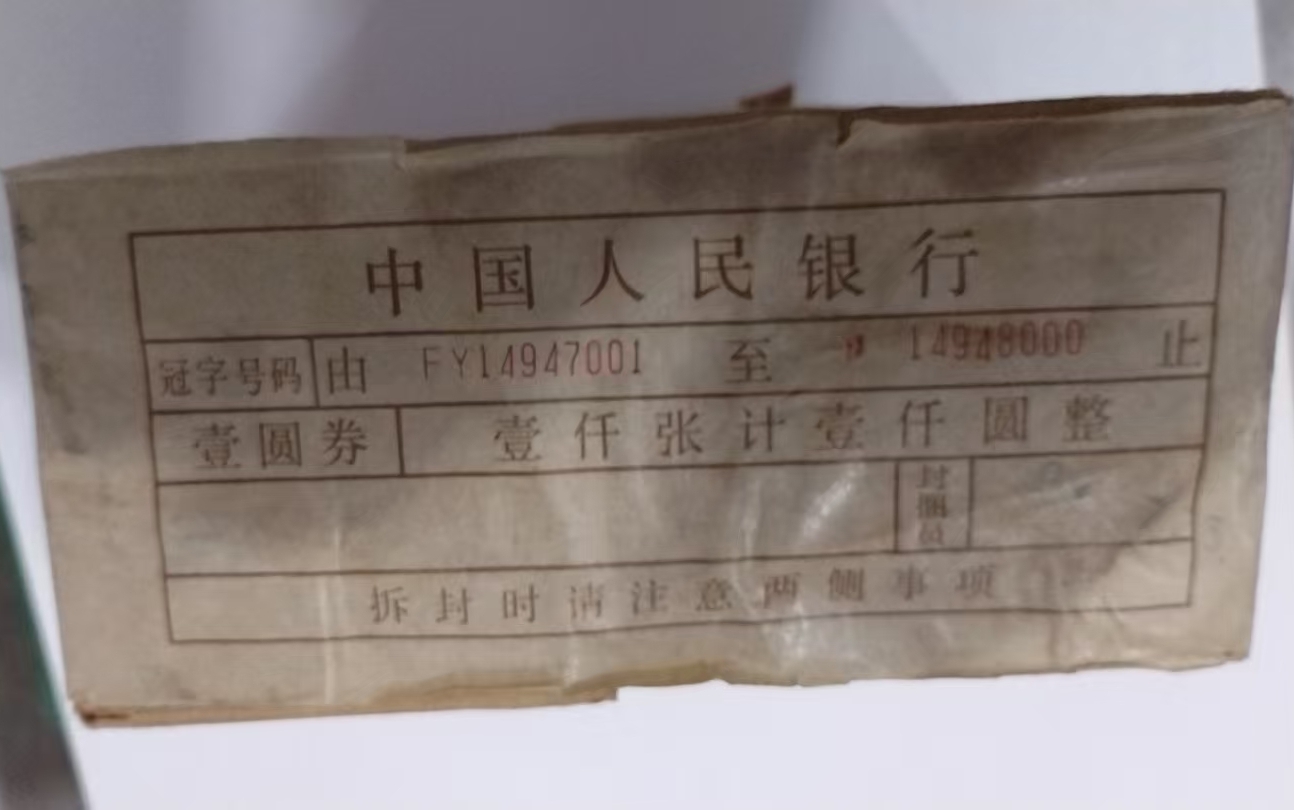 中国人民银行
冠字号码 由 FY14947001 至 14948000 止
壹圆券 壹仟张计壹仟圆整
封捆员
拆封时请注意两侧事项